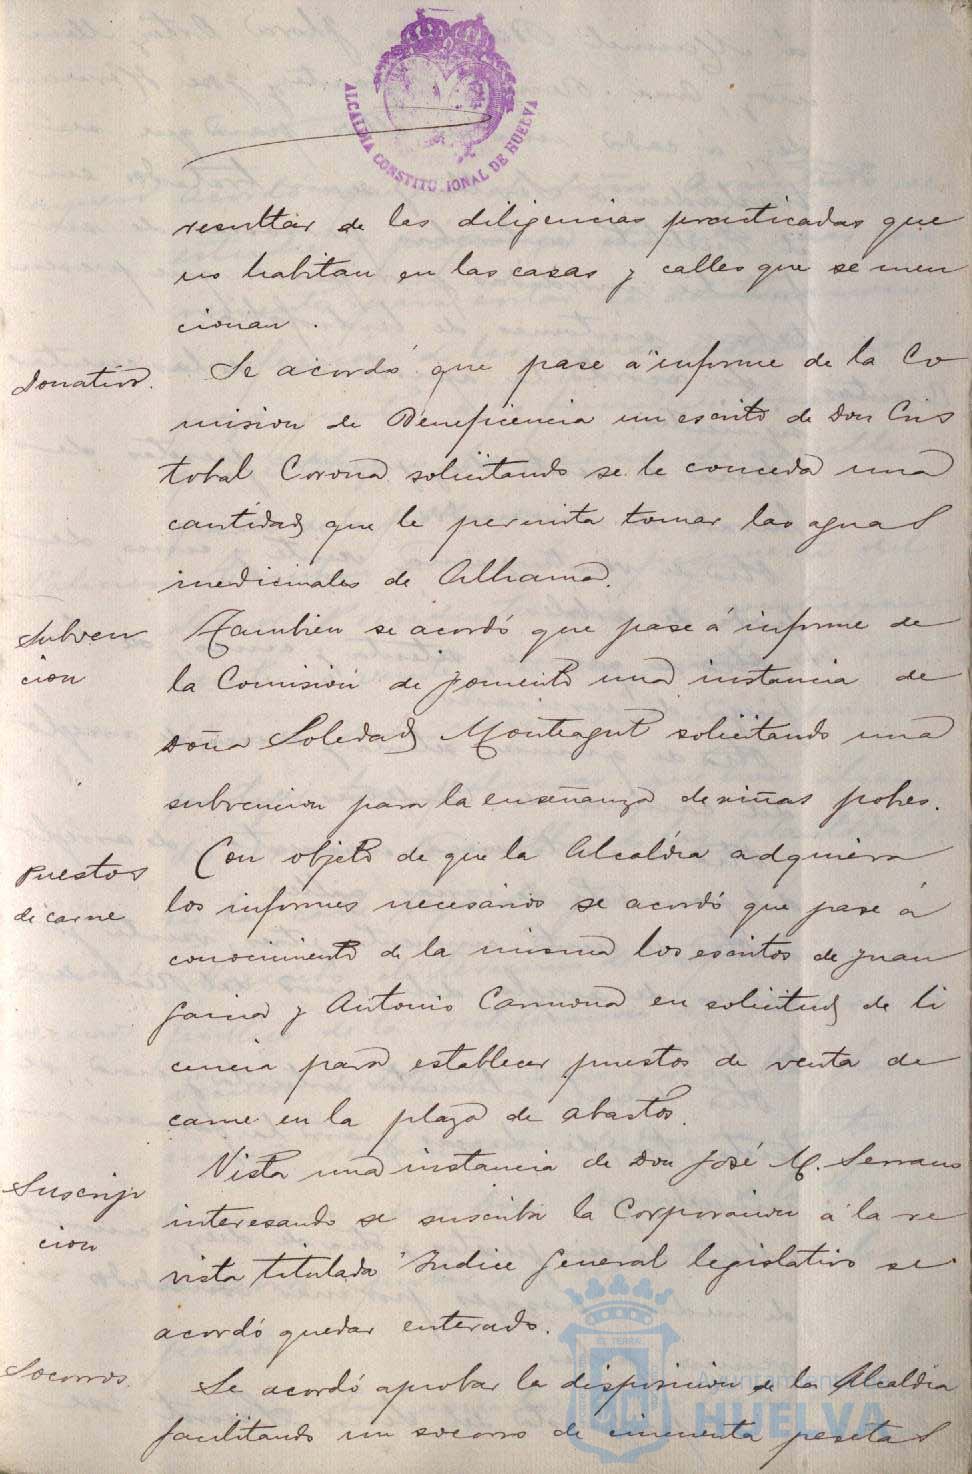 ALCALDIA CONSTITUCIONAL DE HUELVA
resultar de las diligencias practicadas que
no habitan en las casas y calles que se men
cionan.
Donativo. Se acordó que pase á informe de la Co
mision de Beneficencia un escrito de Don Cris
tobal Corona solicitando se le conceda una
cantidad que le permita tomar las aguas
medicinales de Alhama.
Subven
cion
Tambien se acordó que pase á informe de
la Comisión de fomento una instancia de
Doña Soledad Montagut solicitando una
subvencion para la enseñanza de niñas pobres.
Puestos
de carne
Con objeto de que la Alcaldía adquiera
los informes necesarios se acordó que pase á
conocimiento de la misma los escritos de Juan
Garcia y Antonio Carmona en solicitud de li
cencia para establecer puestos de venta de
carne en la plaza de abastos.
Suscrip
cion
Vista una instancia de Don José M. Serrano
interesando se suscriba la Corporacion á la re
vista titulada "Indice General legislativo se
acordó quedar enterado.
Socorros. Se acordó aprobar la disposicion de la Alcaldia
facilitando un socorro de cincuenta pesetas
Ayuntamiento
HUELVA